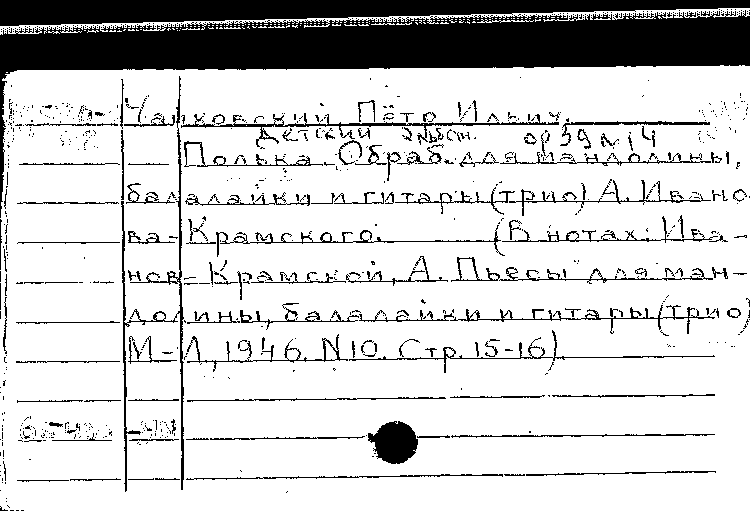 Чайковский, Пётр Ильич.
Детский альбом. ор 39 № 14
Полька. Обраб. для мандолины,
балалайки и гитары (трио) А. Ивано
ва-Крамского. (В нотах: Ива-
нов-Крамской, А. Пьесы для ман-
долины, балалайки и гитары (трио)
М-Л, 1946. N10. Стр. 15-16).